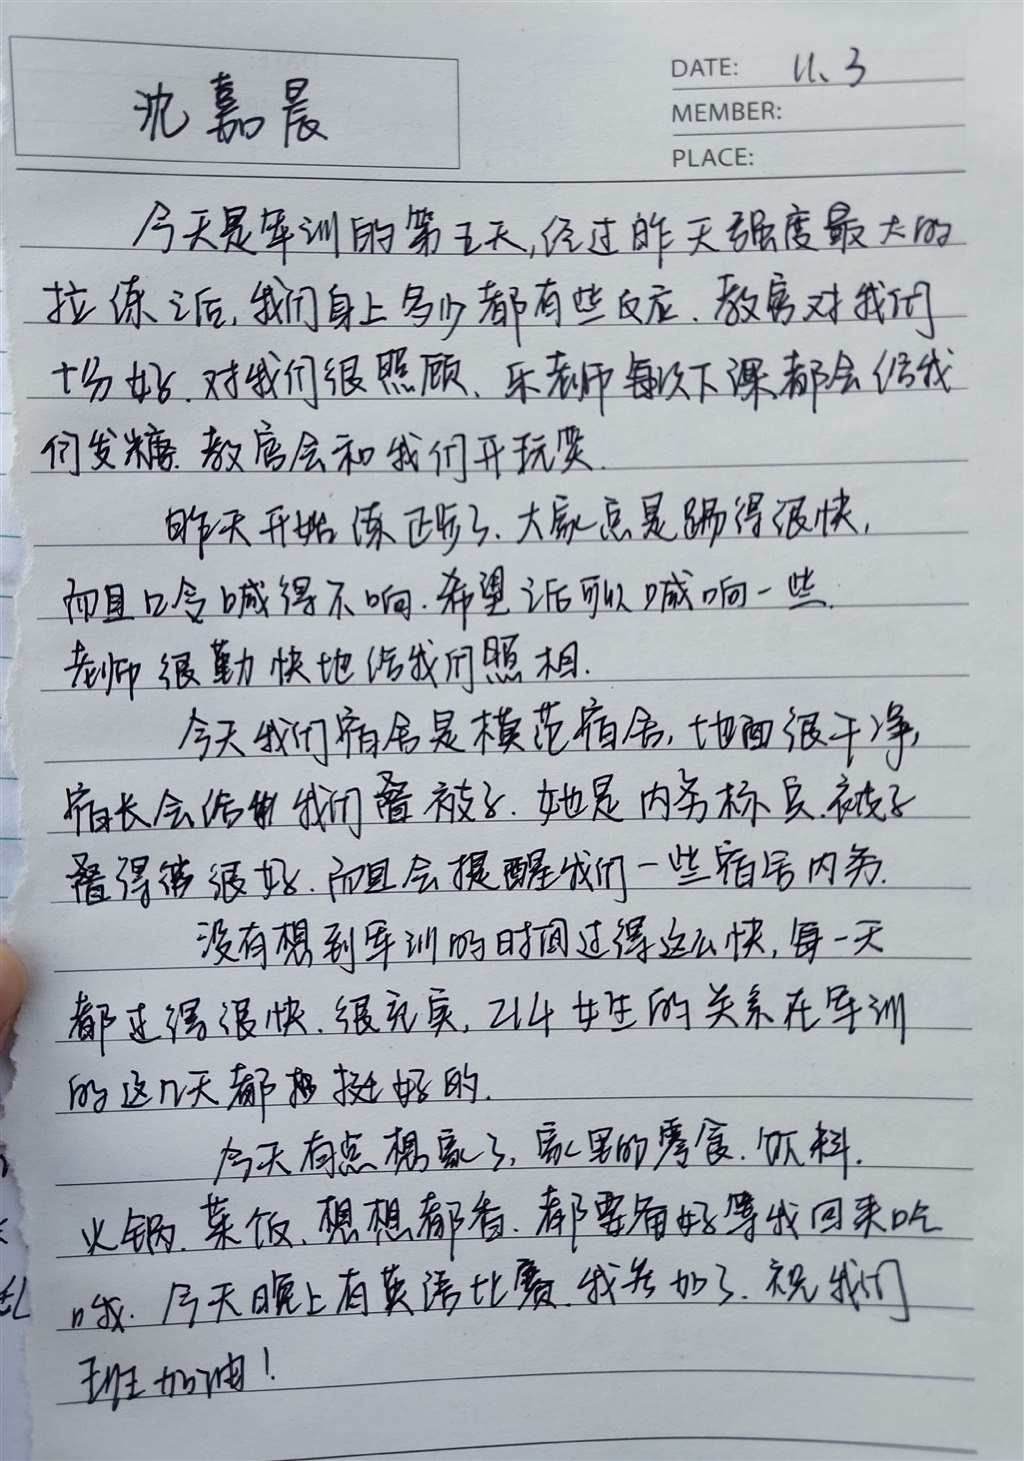 沈嘉晨
DATE: 11、3
MEMBER:
PLACE:
今天是军训的第五天,经过昨天强度最大的
拉练之后,我们身上多少都有些反应.教官对我们
十分好.对我们很照顾、乐老师每次下课都会给我
们发糖.教官会和我们开玩笑.
昨天开始练正步了.大家总是踢得很快,
而且口令喊得不响.希望之后可以喊响一些.
老师很勤快地给我们照相.
今天我们宿舍是模范宿舍,地面很干净,
宿长会给我们叠被子.她是内务标兵.被子
叠得很好.而且会提醒我们一些宿舍内务.
没有想到军训的时间过得这么快,每一天
都过得很快.很充实,214女生的关系在军训
的这几天都挺好的.
今天有点想家了,家里的零食.饮料.
火锅.菜饭.想想都香.都要留好等我回来吃
哦.今天晚上有英语比赛.我参加了.祝我们
班加油!